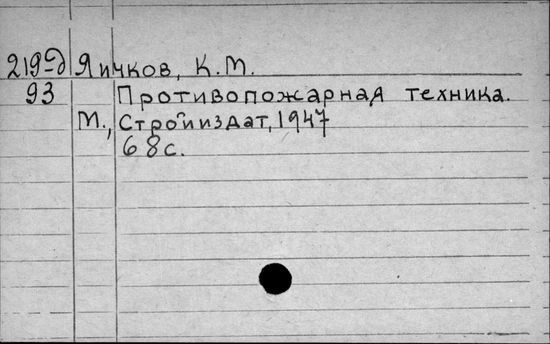 219-д Яичков, К.М.
93 Противопожарная техника.
М., Стройиздат, 1947
68с.